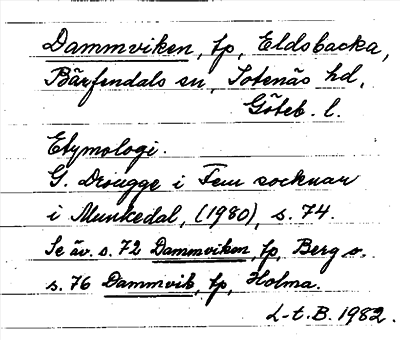 Dammviken, tp, Eldsbacka,
Bärfendals sn, Sotenäs hd,
Göteb. l.
Etymologi.
G. Drougge i Fem socknar
i Munkedal, (1980), s. 74.
Se äv. s. 72 Dammviken, tp, Berg o.
s. 76 Dammvik, tp, Holma.
L-t. B. 1982.